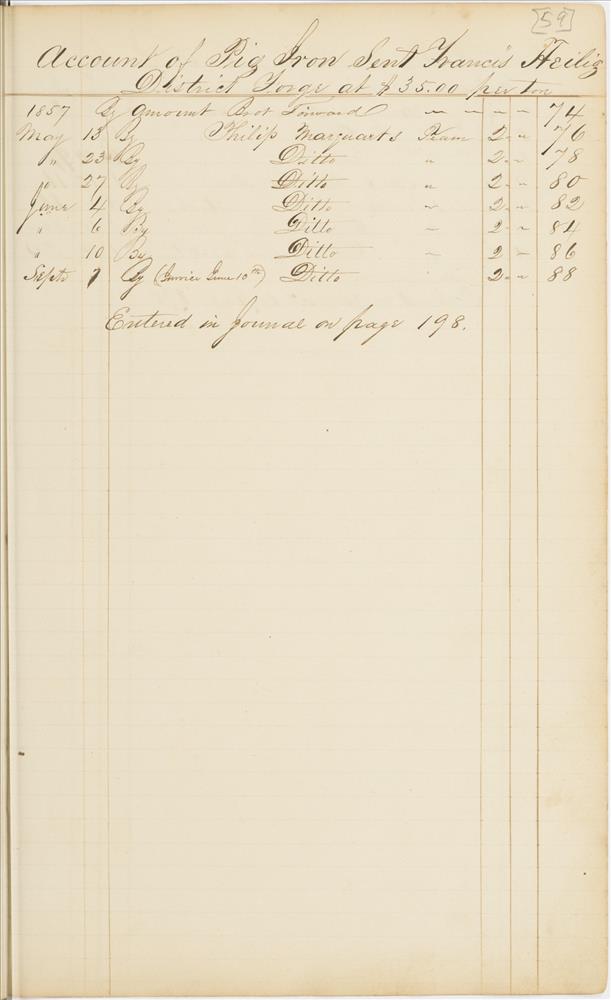 [59]
Account of Pig Iron Sent Francis Heilig
District Forge at $35.00 per ton
1857 By Amount Brot Forward " " " " 74
May 13 By Philip Marquarts Team 2 " " 76
" 23 By Ditto " 2 " " 78
" 27 By Ditto " 2 " " 80
June 4 By Ditto " 2 " " 82
" 6 By Ditto " 2 " " 84
" 10 By Ditto " 2 " " 86
Septr 1 By (Invoice June 10th) Ditto 2 " " 88
Entered in Journal on page 198.